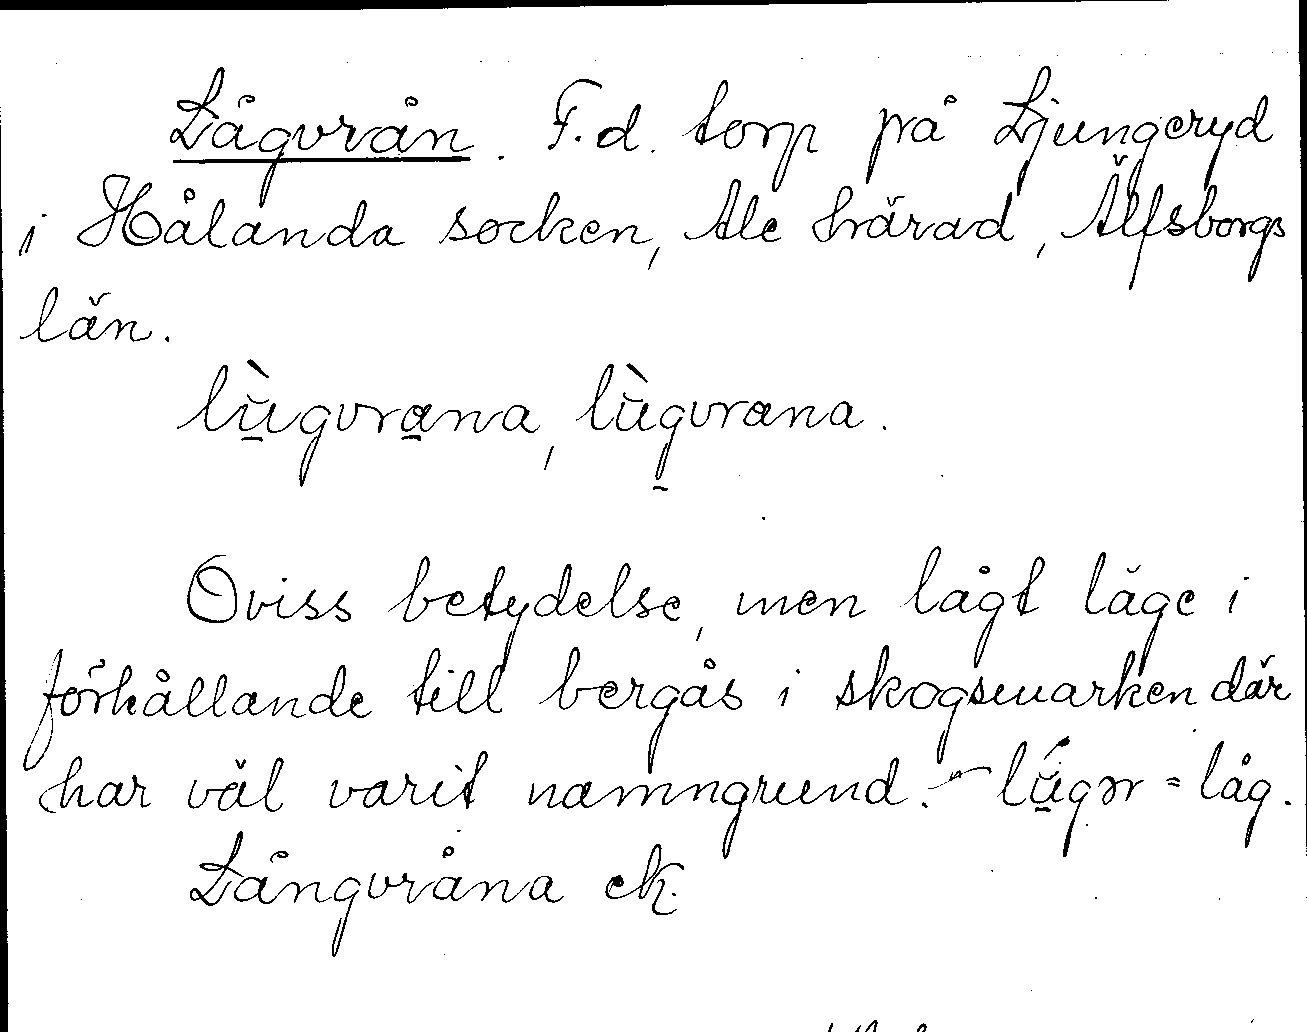 Lågvrån. F.d. torp på Ljungeryd
i Hålanda socken, Ale härad, Älfsborgs
län.
lùgvrana, lùgvrana.
Oviss betydelse, men lågt läge i
förhållande till bergås i skogsmarken där
har väl varit namngrund. – lúgər = låg.
Långvråna ek.